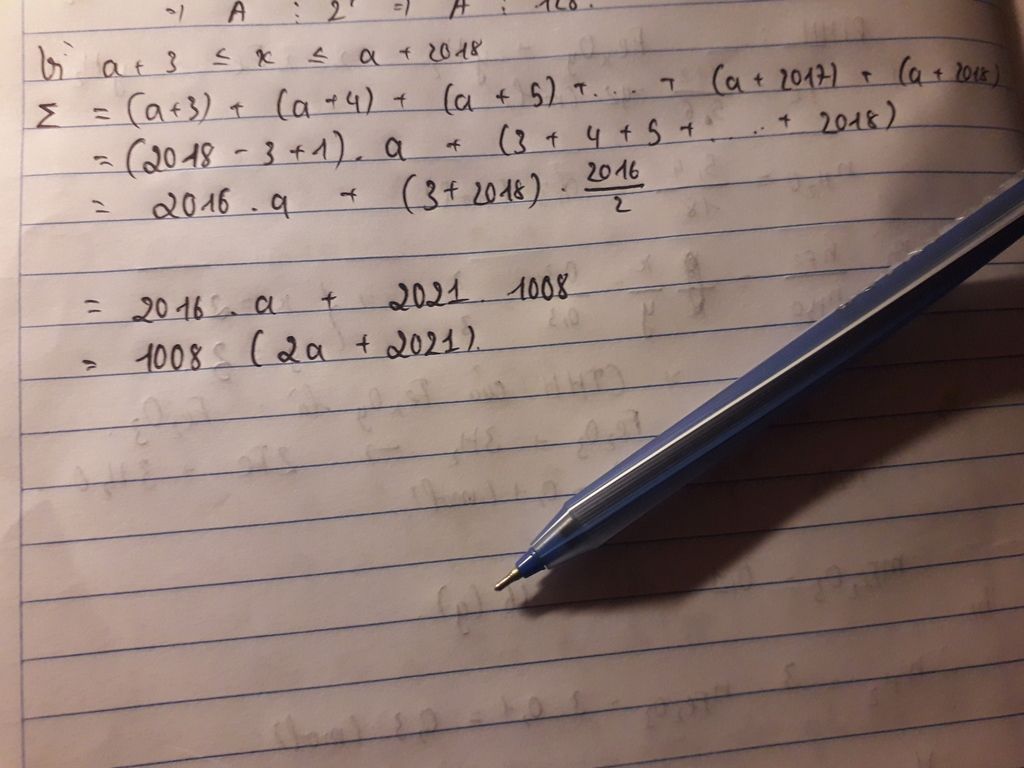 => A ⋮ 2 => A ⋮ 128.
b) a + 3 ≤ x ≤ a + 2018
Σ = (a+3) + (a+4) + (a + 5) + .... + (a + 2017) + (a + 2018)
= (2018 - 3 + 1) . a + (3 + 4 + 5 + .... + 2018)
= 2016 . a + (3 + 2018) . 2016/2
= 2016 . a + 2021 . 1008
= 1008 (2a + 2021).